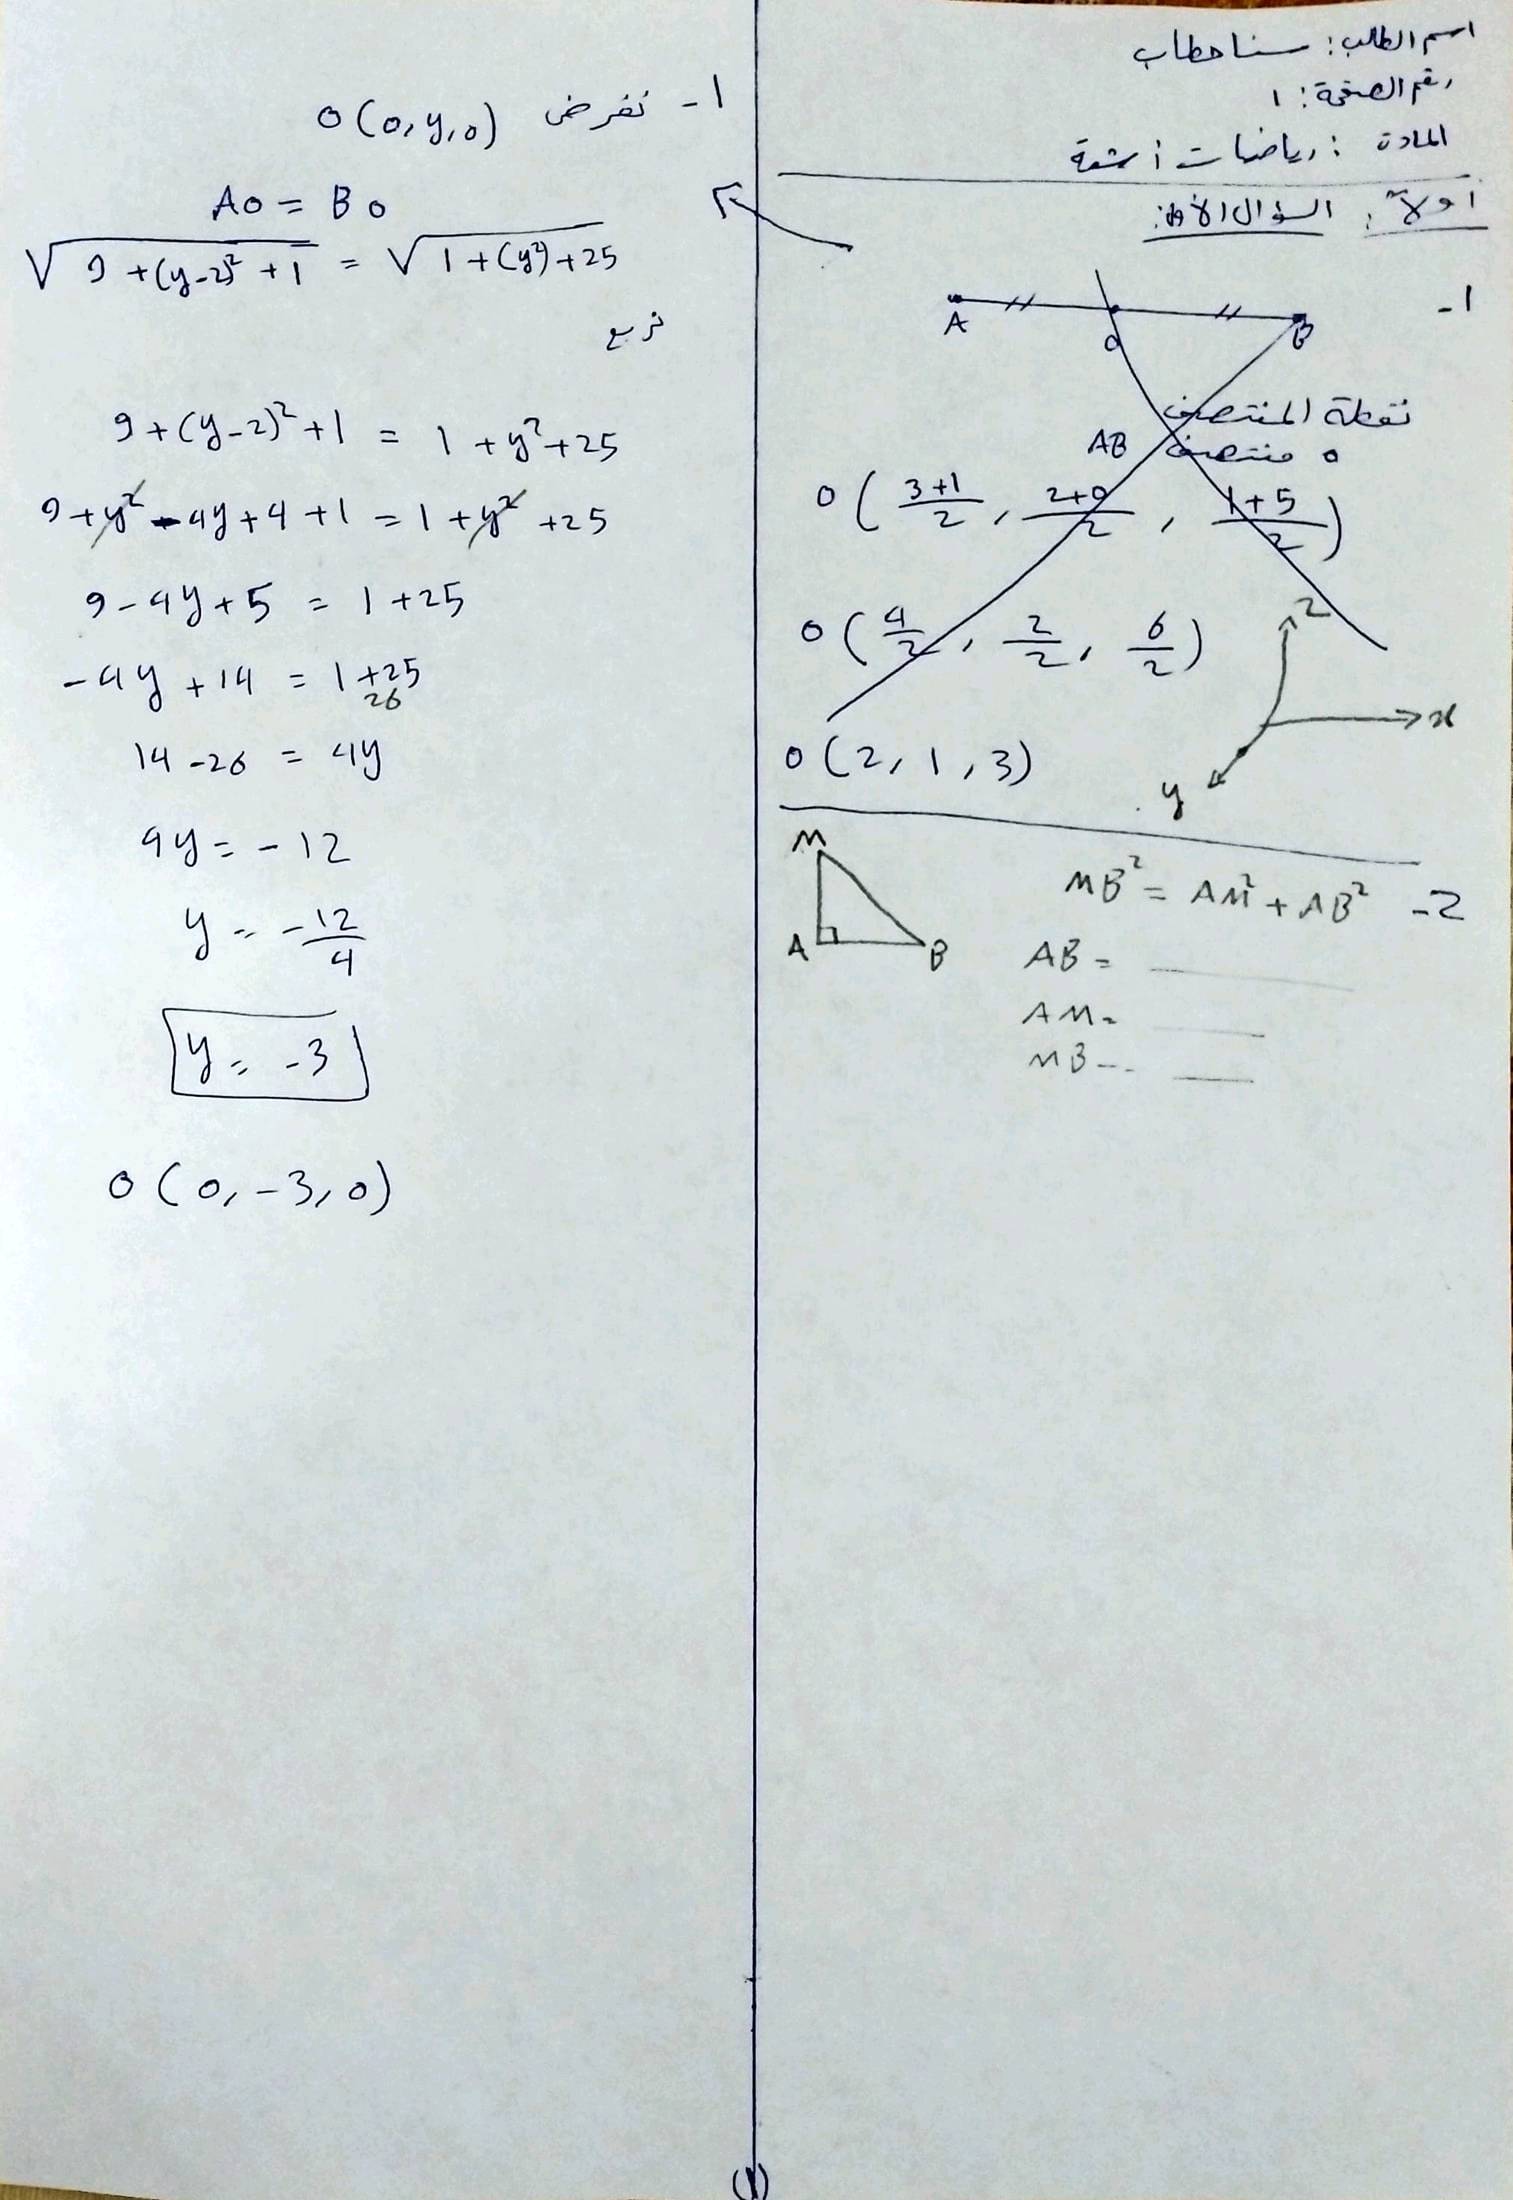 اسم الطالب: سنا حطاب
رقم الصفحة: ١
المادة: رياضيات أشعة
أولاً: السؤال الأول:
1-
A O B
نقطة المنتصف
O منتصف AB
O(3+1/2, 2+0/2, 1+5/2)
O(4/2, 2/2, 6/2)
z
x
y
O(2, 1, 3)
2- MB² = AM² + AB²
M
A B
AB =
AM =
MB --
1- نفرض O(0, y, 0)
AO = BO
√9+(y-2)²+1 = √1+(y²)+25
نربع
9+(y-2)²+1 = 1+y²+25
9+y²-4y+4+1 = 1+y²+25
9-4y+5 = 1+25
-4y+14 = 1+25
26
14-26 = 4y
4y = -12
y = -12/4
y = -3
O(0, -3, 0)
(1)